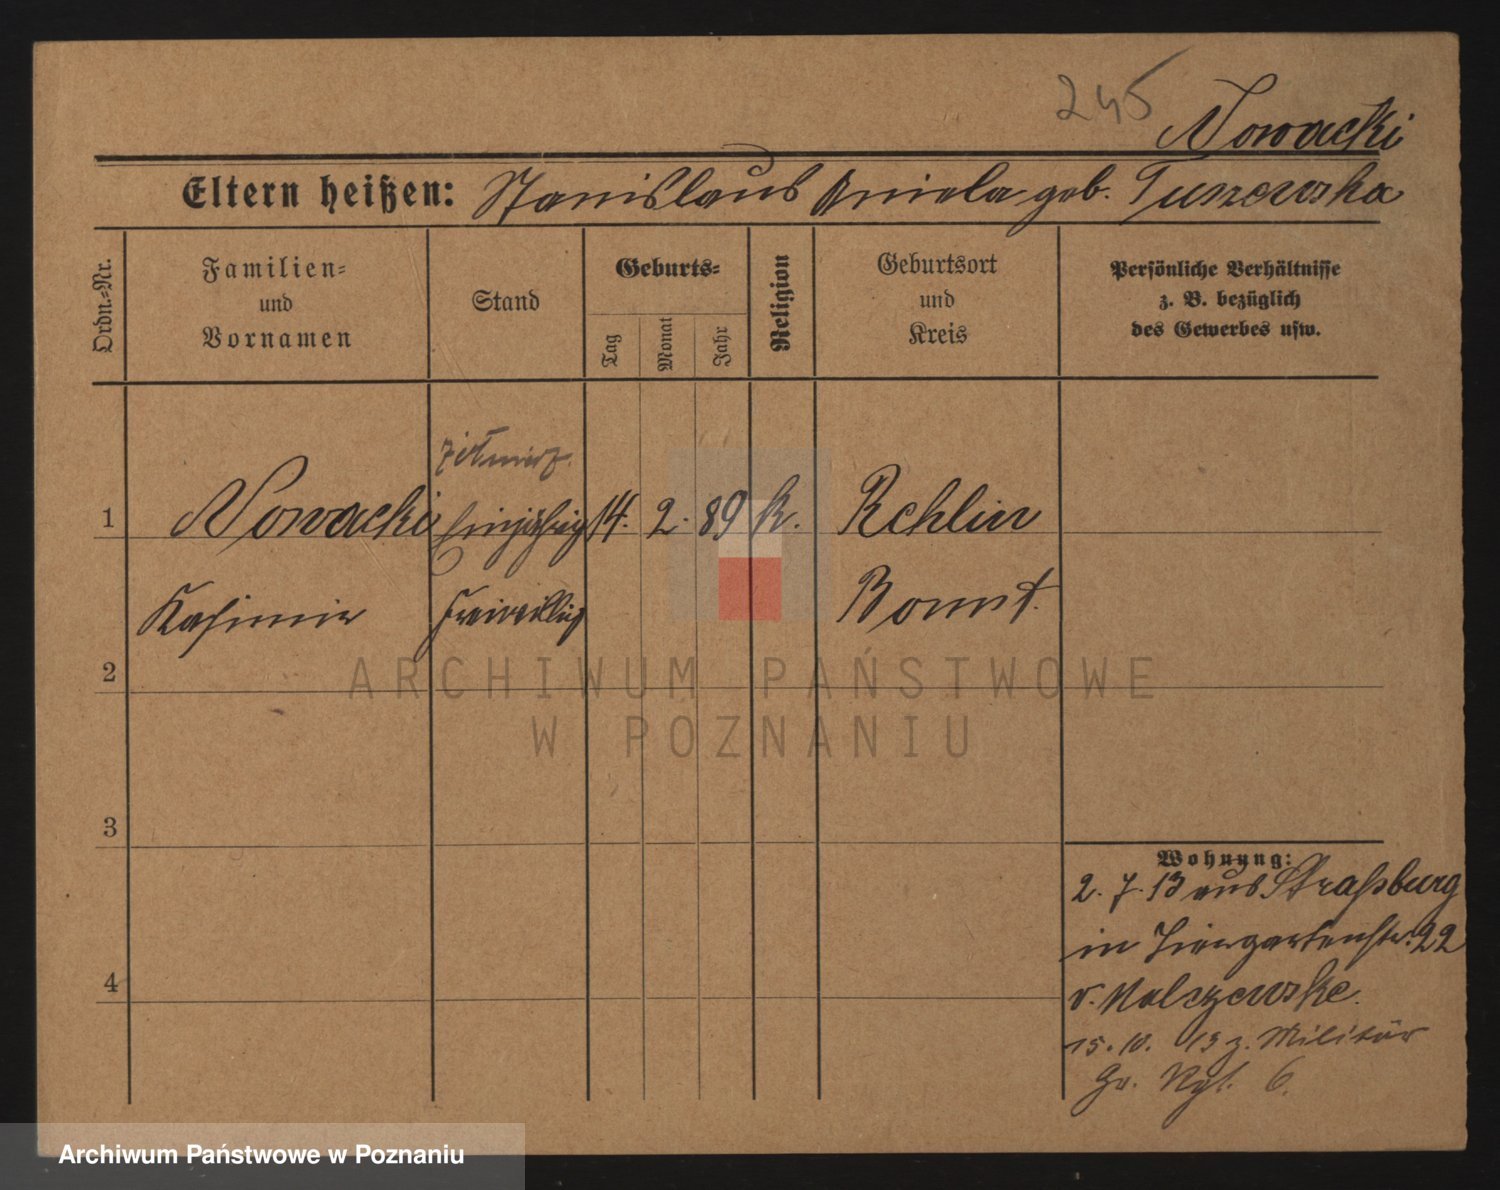 245
Nowacki
Eltern heißen: Stanislaus Aniela geb. Tuszewska
Ordn.=Nr.
Familien=
und
Vornamen
Stand
Geburts=
Tag
Monat
Jahr
Religion
Geburtsort
und
Kreis
Persönliche Verhältnisse
z. B. bezüglich
des Gewerbes usw.
1 Nowacki Einjährig 14. 2. 89 k. Rchlin
Kasimir Freiwillig Bomst.
2
ARCHIWUM PAŃSTWOWE
W POZNANIU
3
Wohnung:
2. 7. 13 aus Straßburg
in Tiergartenstr. 22
b.
4
15. 10. 13 z. Militär
Gr. Rgt. 6.
Archiwum Państwowe w Poznaniu